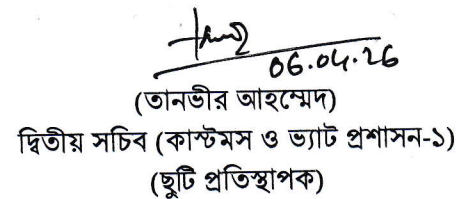 06.04.26
(তানভীর আহম্মেদ)
দ্বিতীয় সচিব (কাস্টমস ও ভ্যাট প্রশাসন-১)
(ছুটি প্রতিস্থাপক)